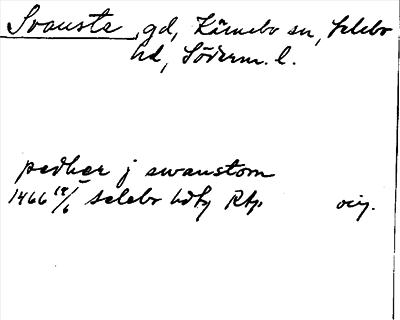 Svansta, gd, Kärnebo sn, Selebo
hd, Söderm. l.
pedher j swanstom
1466 18/6 Selebo hdtg Rtp. orig.